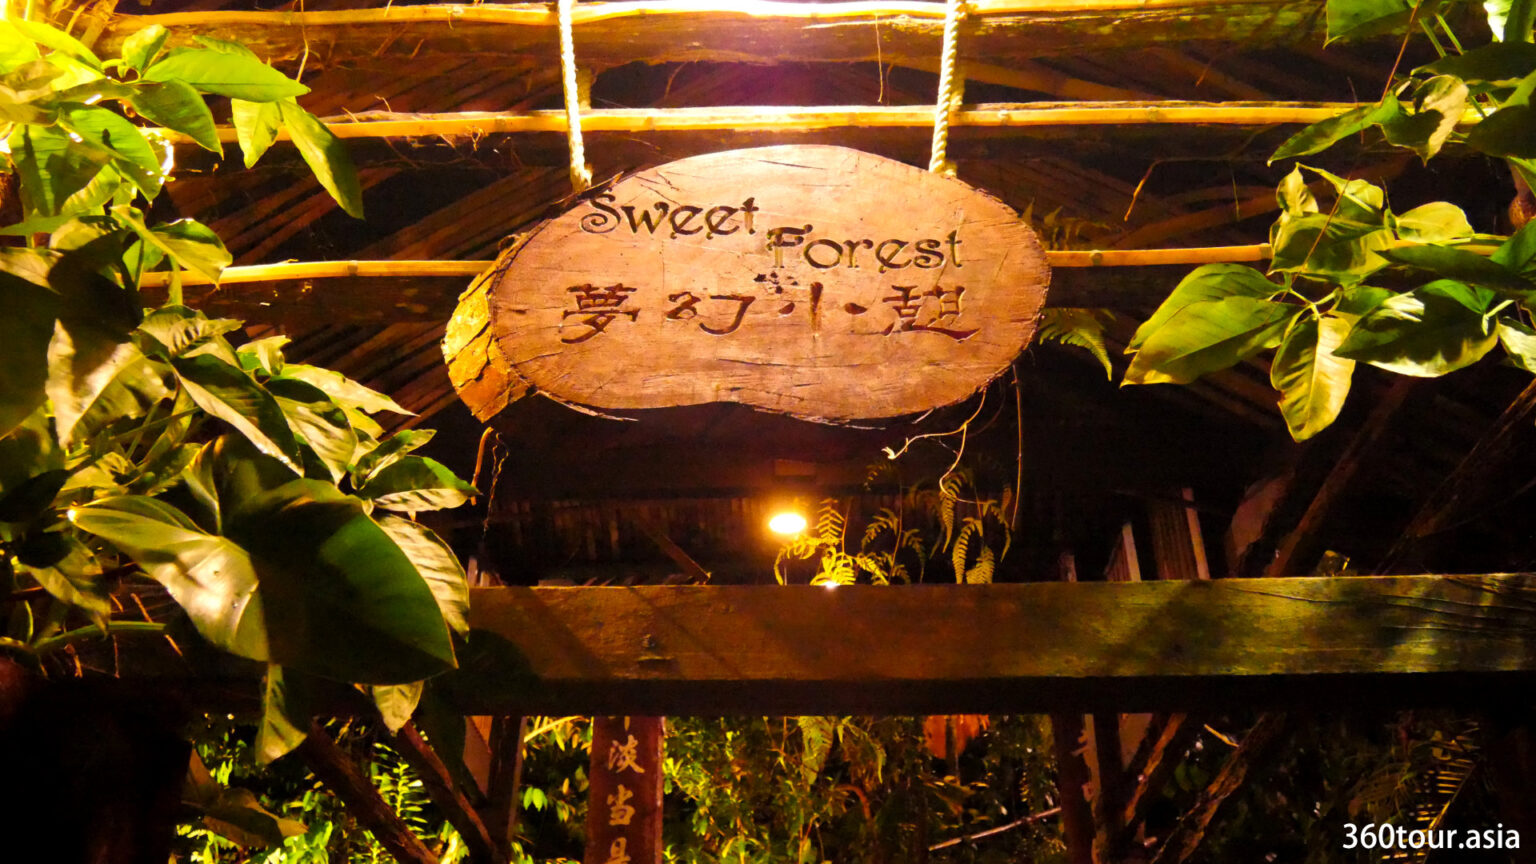 Sweet
Forest
夢幻小憩
淡
当
是
360tour.asia